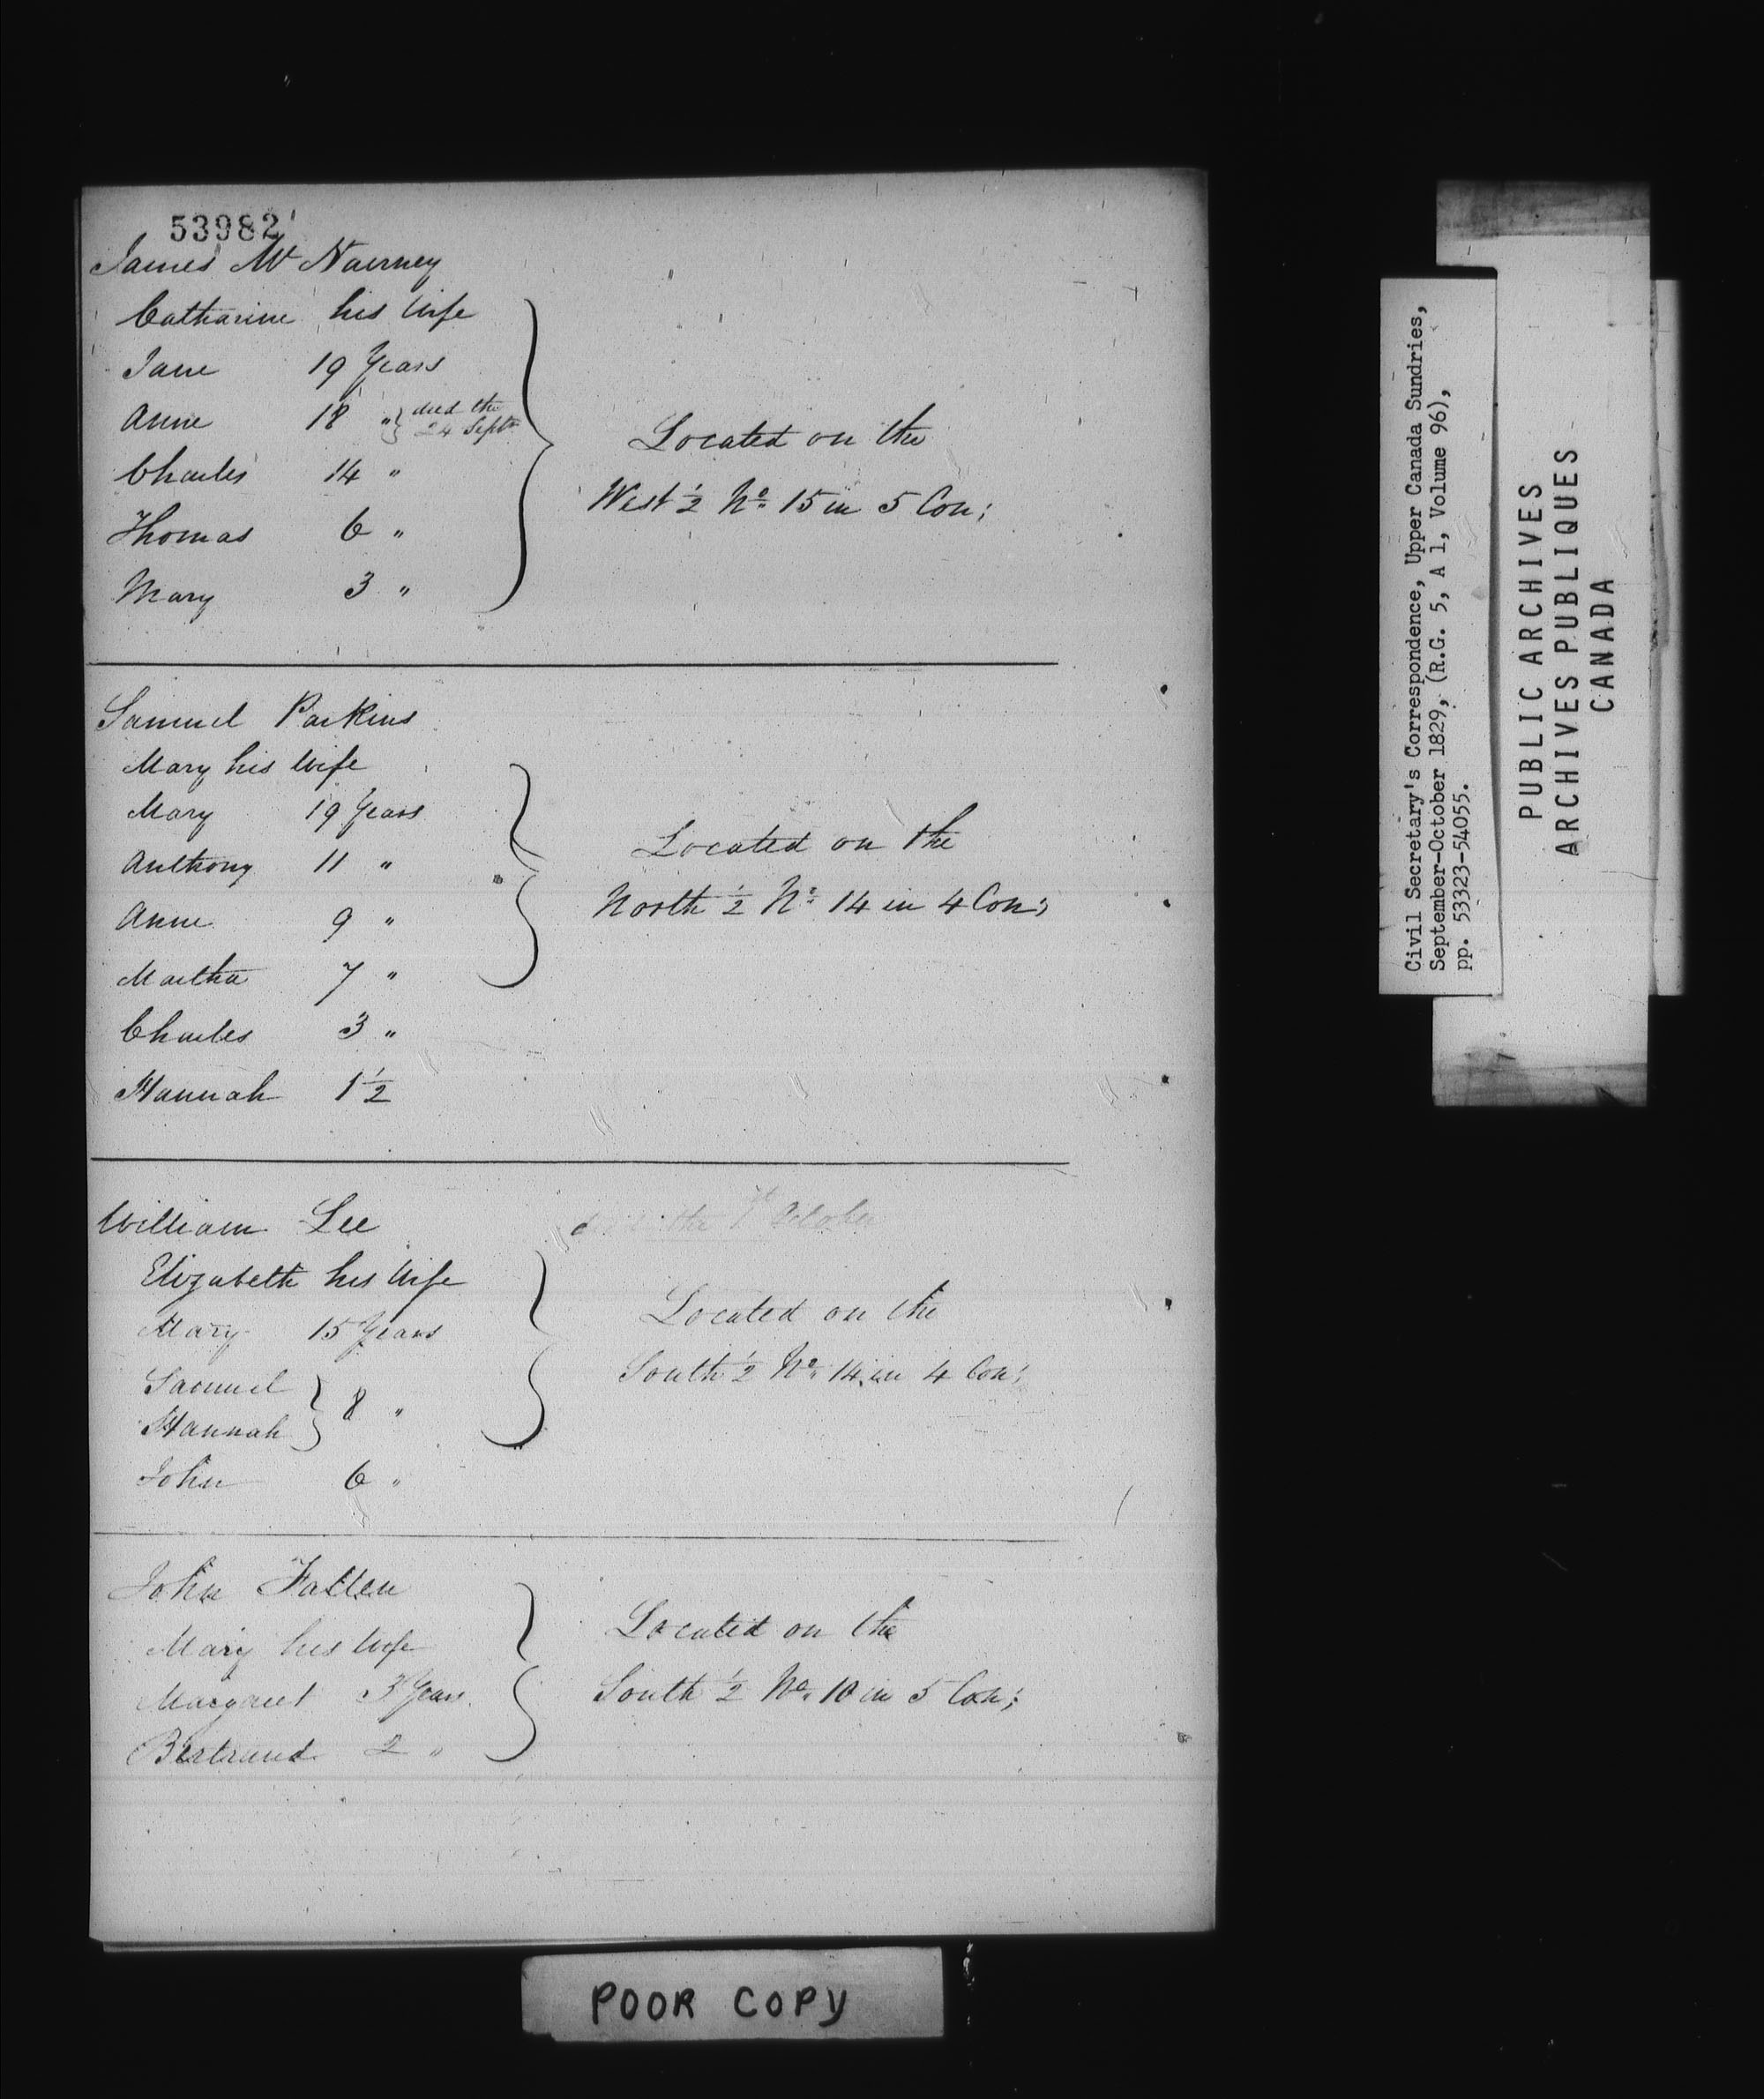 53982
James Mc Nairney
Catharine his Wife
Jane 19 Years
Anne 18 " } died the 24 Septr
Charles 14 "
Thomas 6 "
Mary 3 "
Located on the
West 1/2 No. 15 in 5 Con;
Samuel Parkins
Mary his Wife
Mary 19 Years
Anthony 11 "
Anne 9 "
Martha 7 "
Charles 3 "
Hannah 1 1/2
Located on the
North 1/2 No. 14 in 4 Con;
William Lee the 1st October
Elizabeth his Wife
Mary 15 Years
Samuel
Hannah } 8 "
John 6 "
Located on the
South 1/2 No. 14 in 4 Con;
John Fallen
Mary his Wife
Margaret 3 Years
Bertrand 2 "
Located on the
South 1/2 No. 10 in 5 Con;
POOR COPY
Civil Secretary's Correspondence, Upper Canada Sundries,
September-October 1829, (R.G. 5, A 1, Volume 96),
pp. 53323-54055.
PUBLIC ARCHIVES
ARCHIVES PUBLIQUES
CANADA